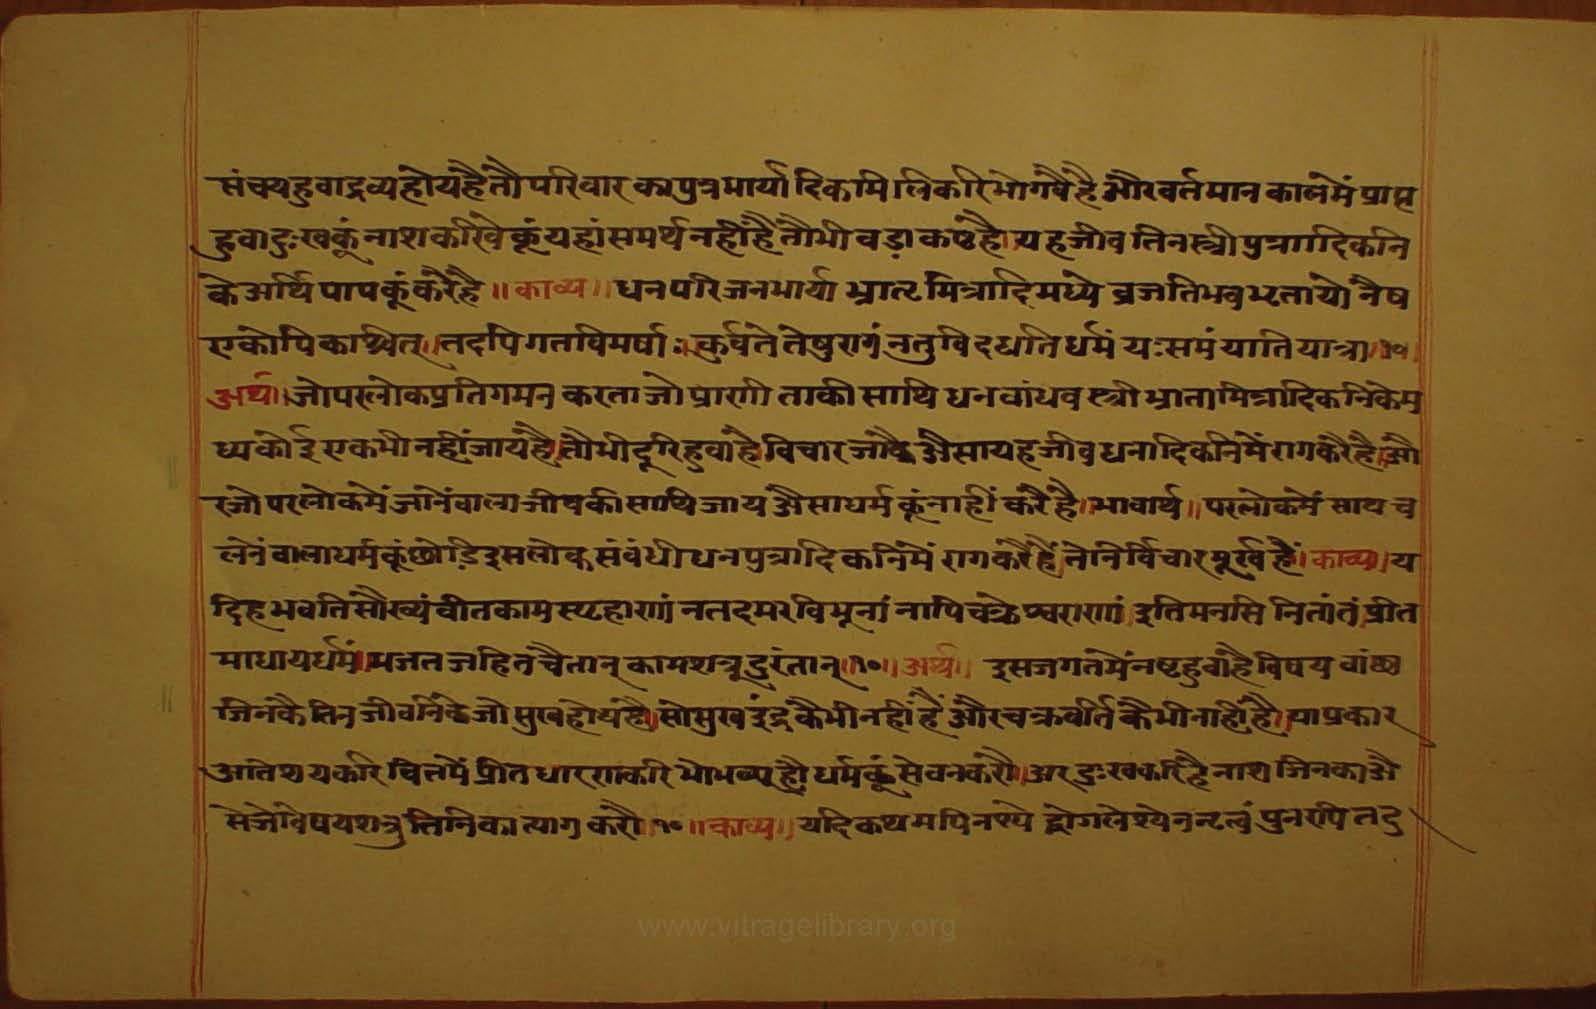 संचयहुवाद्रव्यहोयहैतौपरिवार कापुत्रभार्यादिकामिलिकरिभोगवैहैऔरवर्तमान कालमेंप्राप्त
हुवादुःखकूंनाशकरिवेकूंयहांसमर्थनहींहैतौभीवड़ाकष्टहै। यहजीवतिनस्त्रीपुत्रादिकनि
केअर्थिपापकूंकरैहै॥काव्य॥धनपरिजनभार्याभ्रातृमित्रादिमध्ये व्रजतिभवभृतायोनैष
एकोपिकश्चित्॥तदपिगतविमर्षाःकुर्वतेतेषुरागंनतुविदधतिधर्मंयःसमंयातियात्रा॥
अर्थ॥जोपरलोकप्रतिगमन करताजोप्राणी ताकीसाथिधनवांधवस्त्रीभ्रातामित्रादिकनिकेम
ध्यकोईएकभीनहींजायहै।तौभीदूरिहुवाहैविचारजाकैअैसायहजीवधनादिकनिमेंरागकरैहै।औ
रजोपरलोकमेंजानेंवालाजीवकीसाथिजायअैसाधर्मकूंनाहींकरैहै॥भावार्थ॥परलोकमेंसाथच
लेनेंवालाधर्मकूंछोड़िइसलोकसंवंधीधनपुत्रादिकनिमेंरागकरैहैंतेनिर्विचारमूर्खहैं।काव्य॥य
दिहभवतिसौख्यंवीतकामस्पृहाणां नतदमरविभूनां नापिचक्रेश्वराणां इतिमनसिनितांतंप्रीत
माधायधर्मं।भजतजहितचैतान्कामशत्रूदुरंतान्॥१०॥अर्थ॥ इसजगतमेंनष्टहुवाहैविषयवांछा
जिनकैतिनजीवनिकेजोसुखहोयहै।सोसुखइंद्रकैभीनहींहैऔरचक्रवर्तिकैभीनाहींहै।याप्रकार
अतिशयकरिचित्तमेंप्रीतधारणकरिभोभव्यहोधर्मकूंसेवनकरौ।अरदुःखकरिहैनाशजिनकाअै
सेजेविषयशत्रुतिनिकात्यागकरौ।१०॥काव्य॥यदिकथमपिनश्ये पुनरपितदु
www.vitragelibrary.org